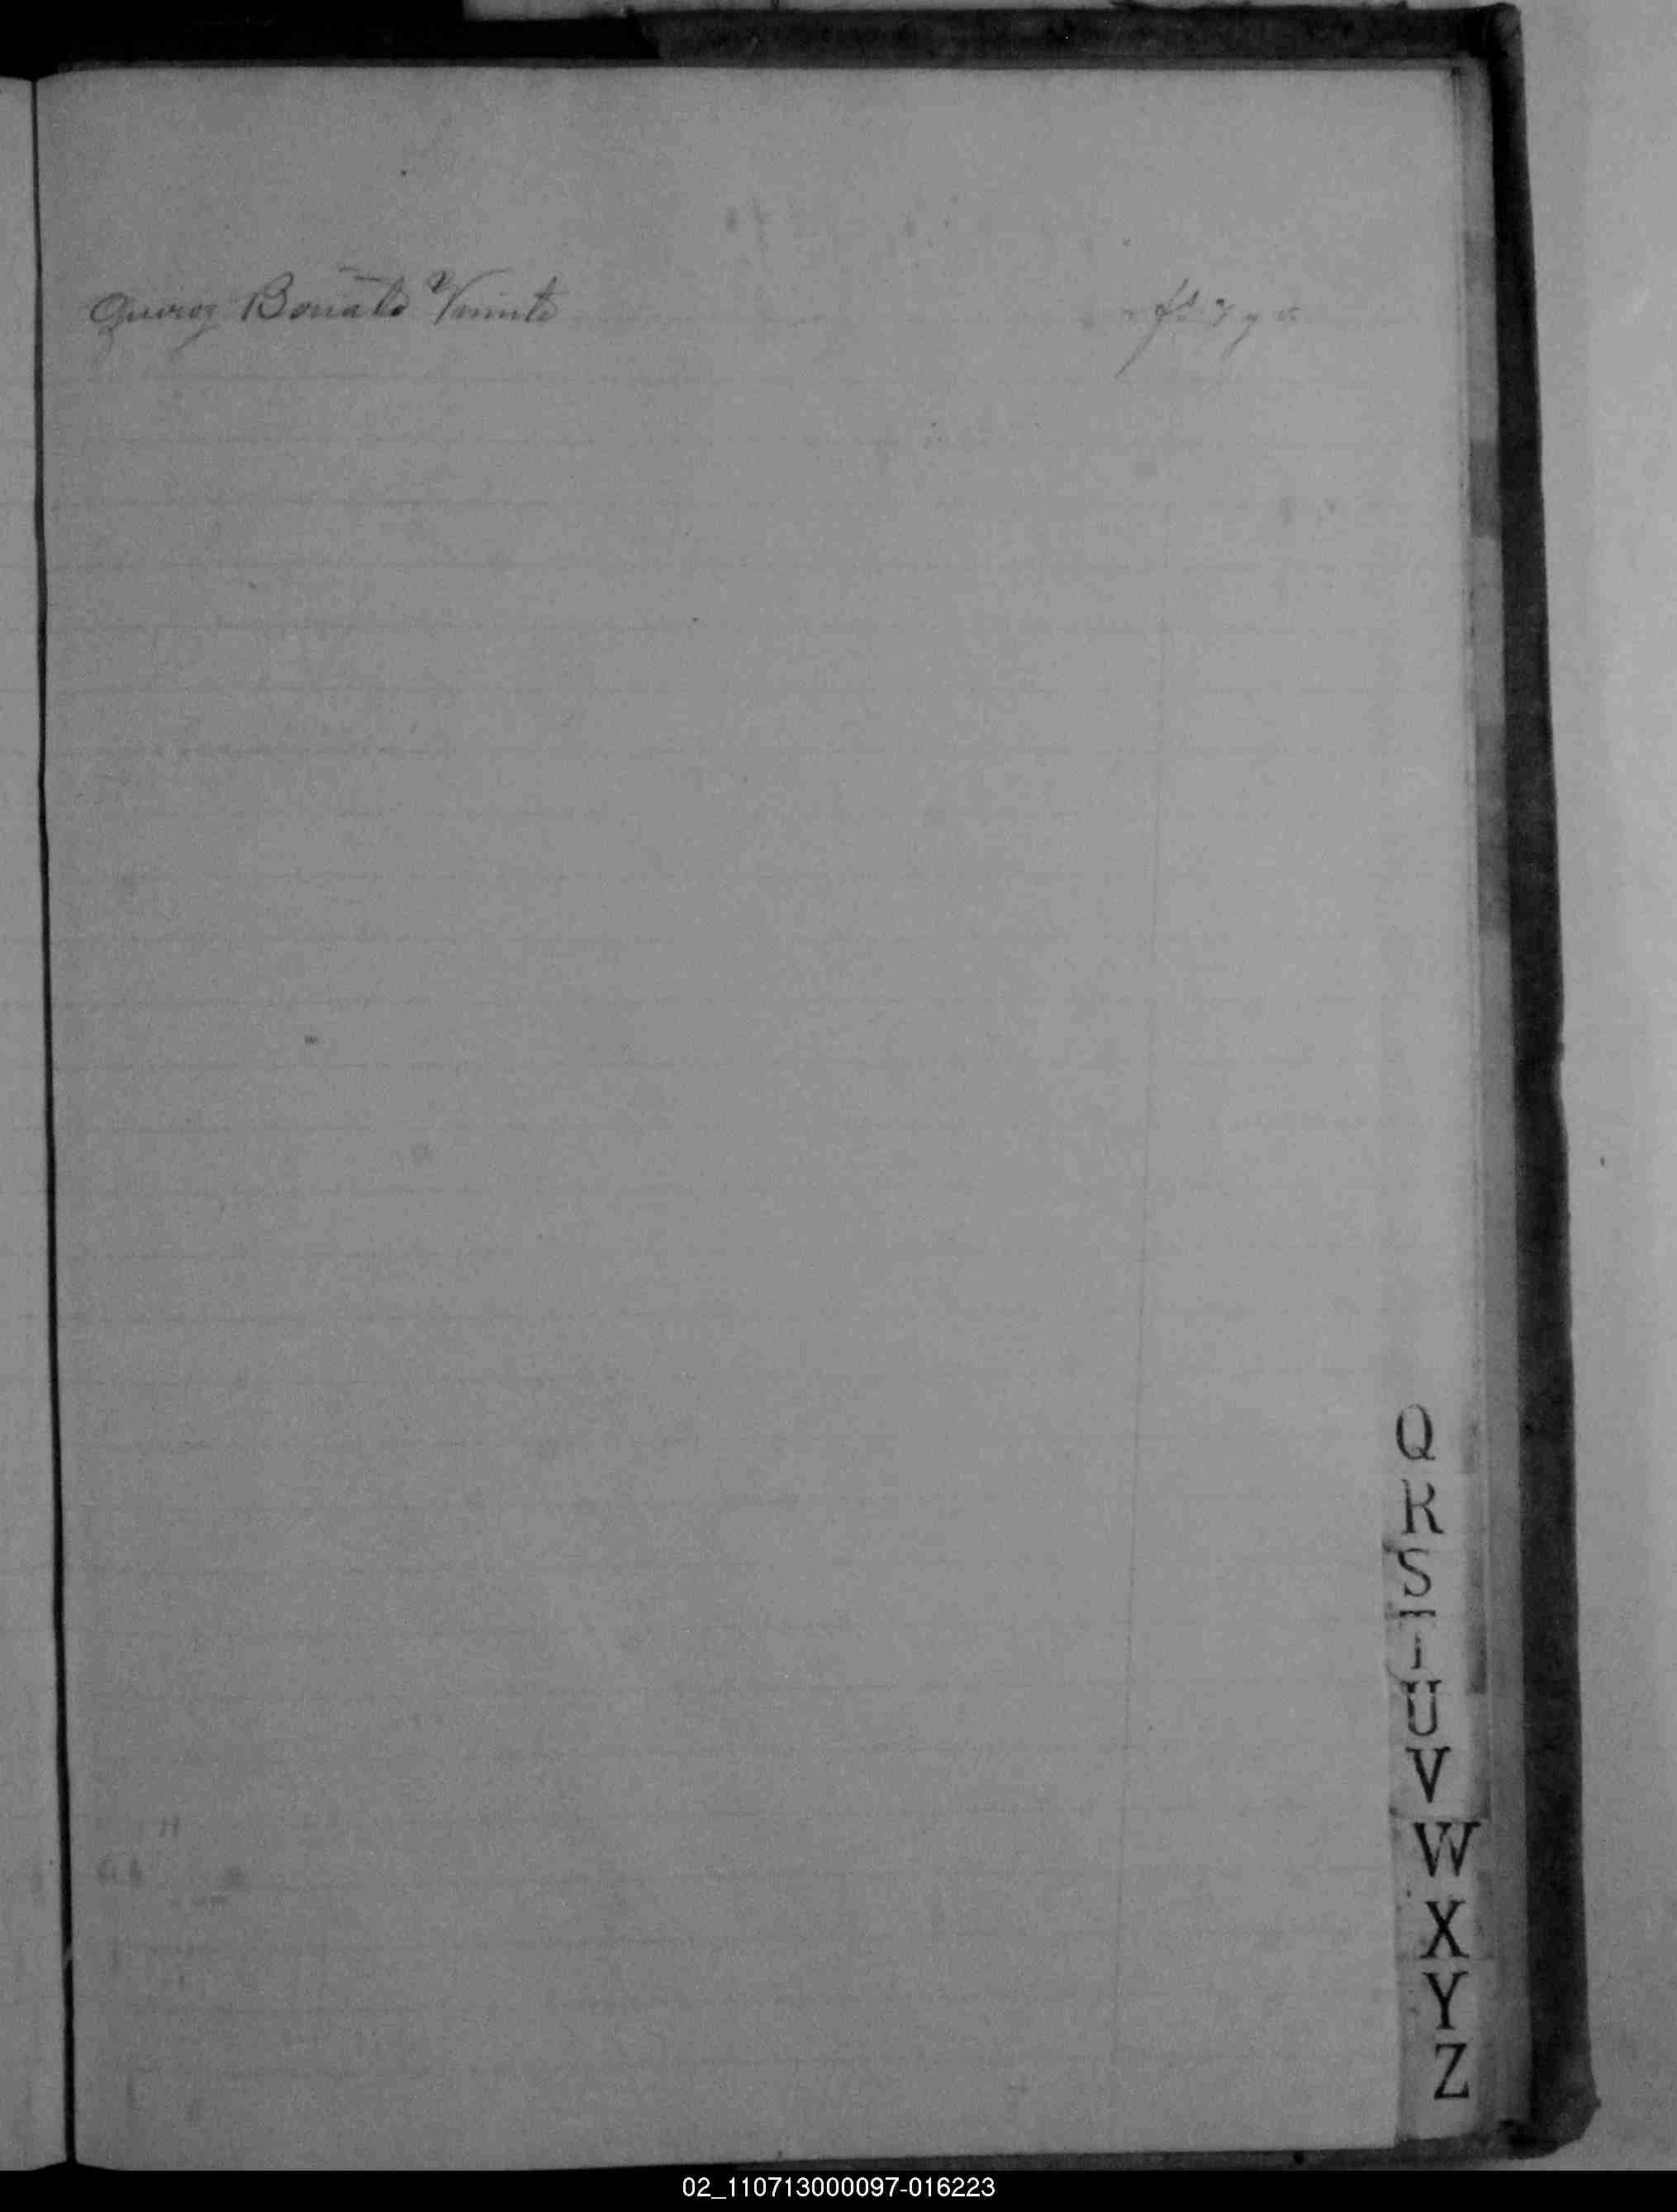 Quiroz Bonato Vicente
Q
R
S
T
U
V
W
X
Y
Z
02_110713000097-016223